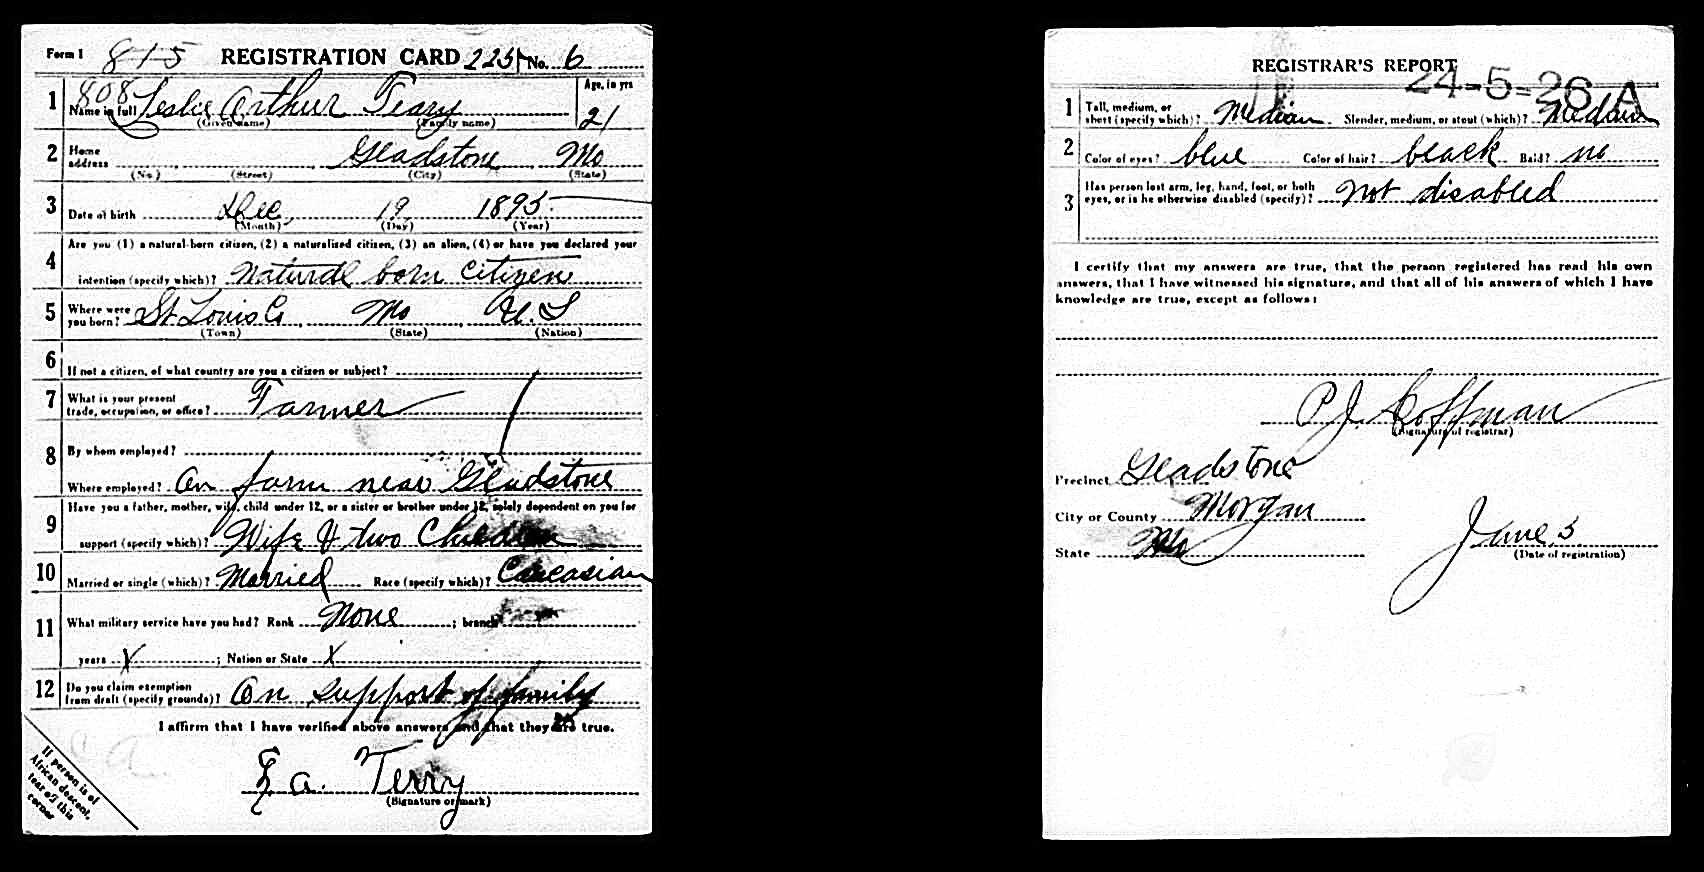 Form 1 815 REGISTRATION CARD 225 No. 6
808 Leslie Arthur Teary Age, in yrs
1 Name in full (Given name) (Family name) 21
2 Home address Gladstone Mo
(No.) (Street) (City) (State)
3 Date of birth Dec, 19, 1895
(Month) (Day) (Year)
4 Are you (1) a natural-born citizen, (2) a naturalized citizen, (3) an alien, (4) or have you declared your
intention (specify which)? Natural born citizen
5 Where were you born? St Louis Co Mo U.S
(Town) (State) (Nation)
6 If not a citizen, of what country are you a citizen or subject?
7 What is your present trade, occupation, or office? Farmer
8 By whom employed?
Where employed? On farm near Gladstone
9 Have you a father, mother, wife, child under 12, or a sister or brother under 12, solely dependent on you for
support (specify which)? Wife & two Children
10 Married or single (which)? Married Race (specify which)? Caucasian
11 What military service have you had? Rank None ; branch
years X ; Nation or State X
12 Do you claim exemption from draft (specify grounds)? On support of family
I affirm that I have verified above answers and that they are true.
L. a. Terry
(Signature or mark)
If person is of
African descent,
tear off this
corner
REGISTRAR'S REPORT
24-5-26 A
1 Tall, medium, or short (specify which)? Median Slender, medium, or stout (which)? Median
2 Color of eyes? blue Color of hair? black Bald? no
3 Has person lost arm, leg, hand, foot, or both
eyes, or is he otherwise disabled (specify)? Not disabled
I certify that my answers are true, that the person registered has read his own
answers, that I have witnessed his signature, and that all of his answers of which I have
knowledge are true, except as follows:
P.J. Coffman
(Signature of registrar)
Precinct Gladstone
City or County Morgan
State Mo
June 5
(Date of registration)